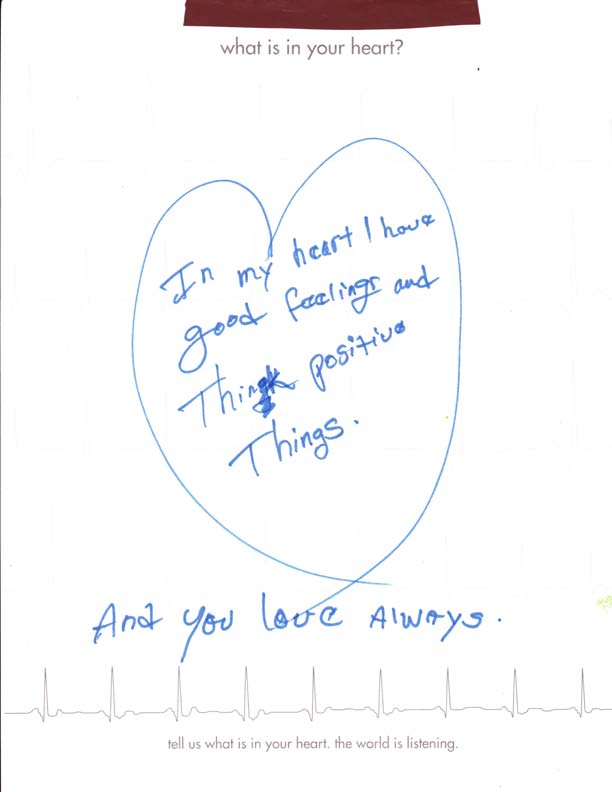 what is in your heart?
In my heart I have
good feelings and
Think positive
Things.
And you love Always.
tell us what is in your heart. the world is listening.